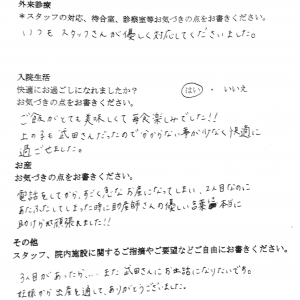 外来診療
＊スタッフの対応、待合室、診察室等お気づきの点をお書きください。
いつも スタッフさんが優しく対応してくださいました。
入院生活
快適にお過ごしになれましたか？ はい ・ いいえ
お気づきの点をお書きください。
ご飯がとても美味しくて毎食楽しみでした!!
上の子も武田さんだったので分からない事が少なく快適に
過ごせました。
お産
お気づきの点をお書きください。
電話をしてから、すごく急なお産になってしまい、2人目なのに
あたふたしてしまった時に助産師さんの優しい言葉に本当に
助けられ頑張れました!!
その他
スタッフ、院内施設に関するご指摘やご要望などご自由にお書きください。
3人目があったら... また武田さんにお世話になりたいです。
妊娠から出産を通して、ありがとうございました。